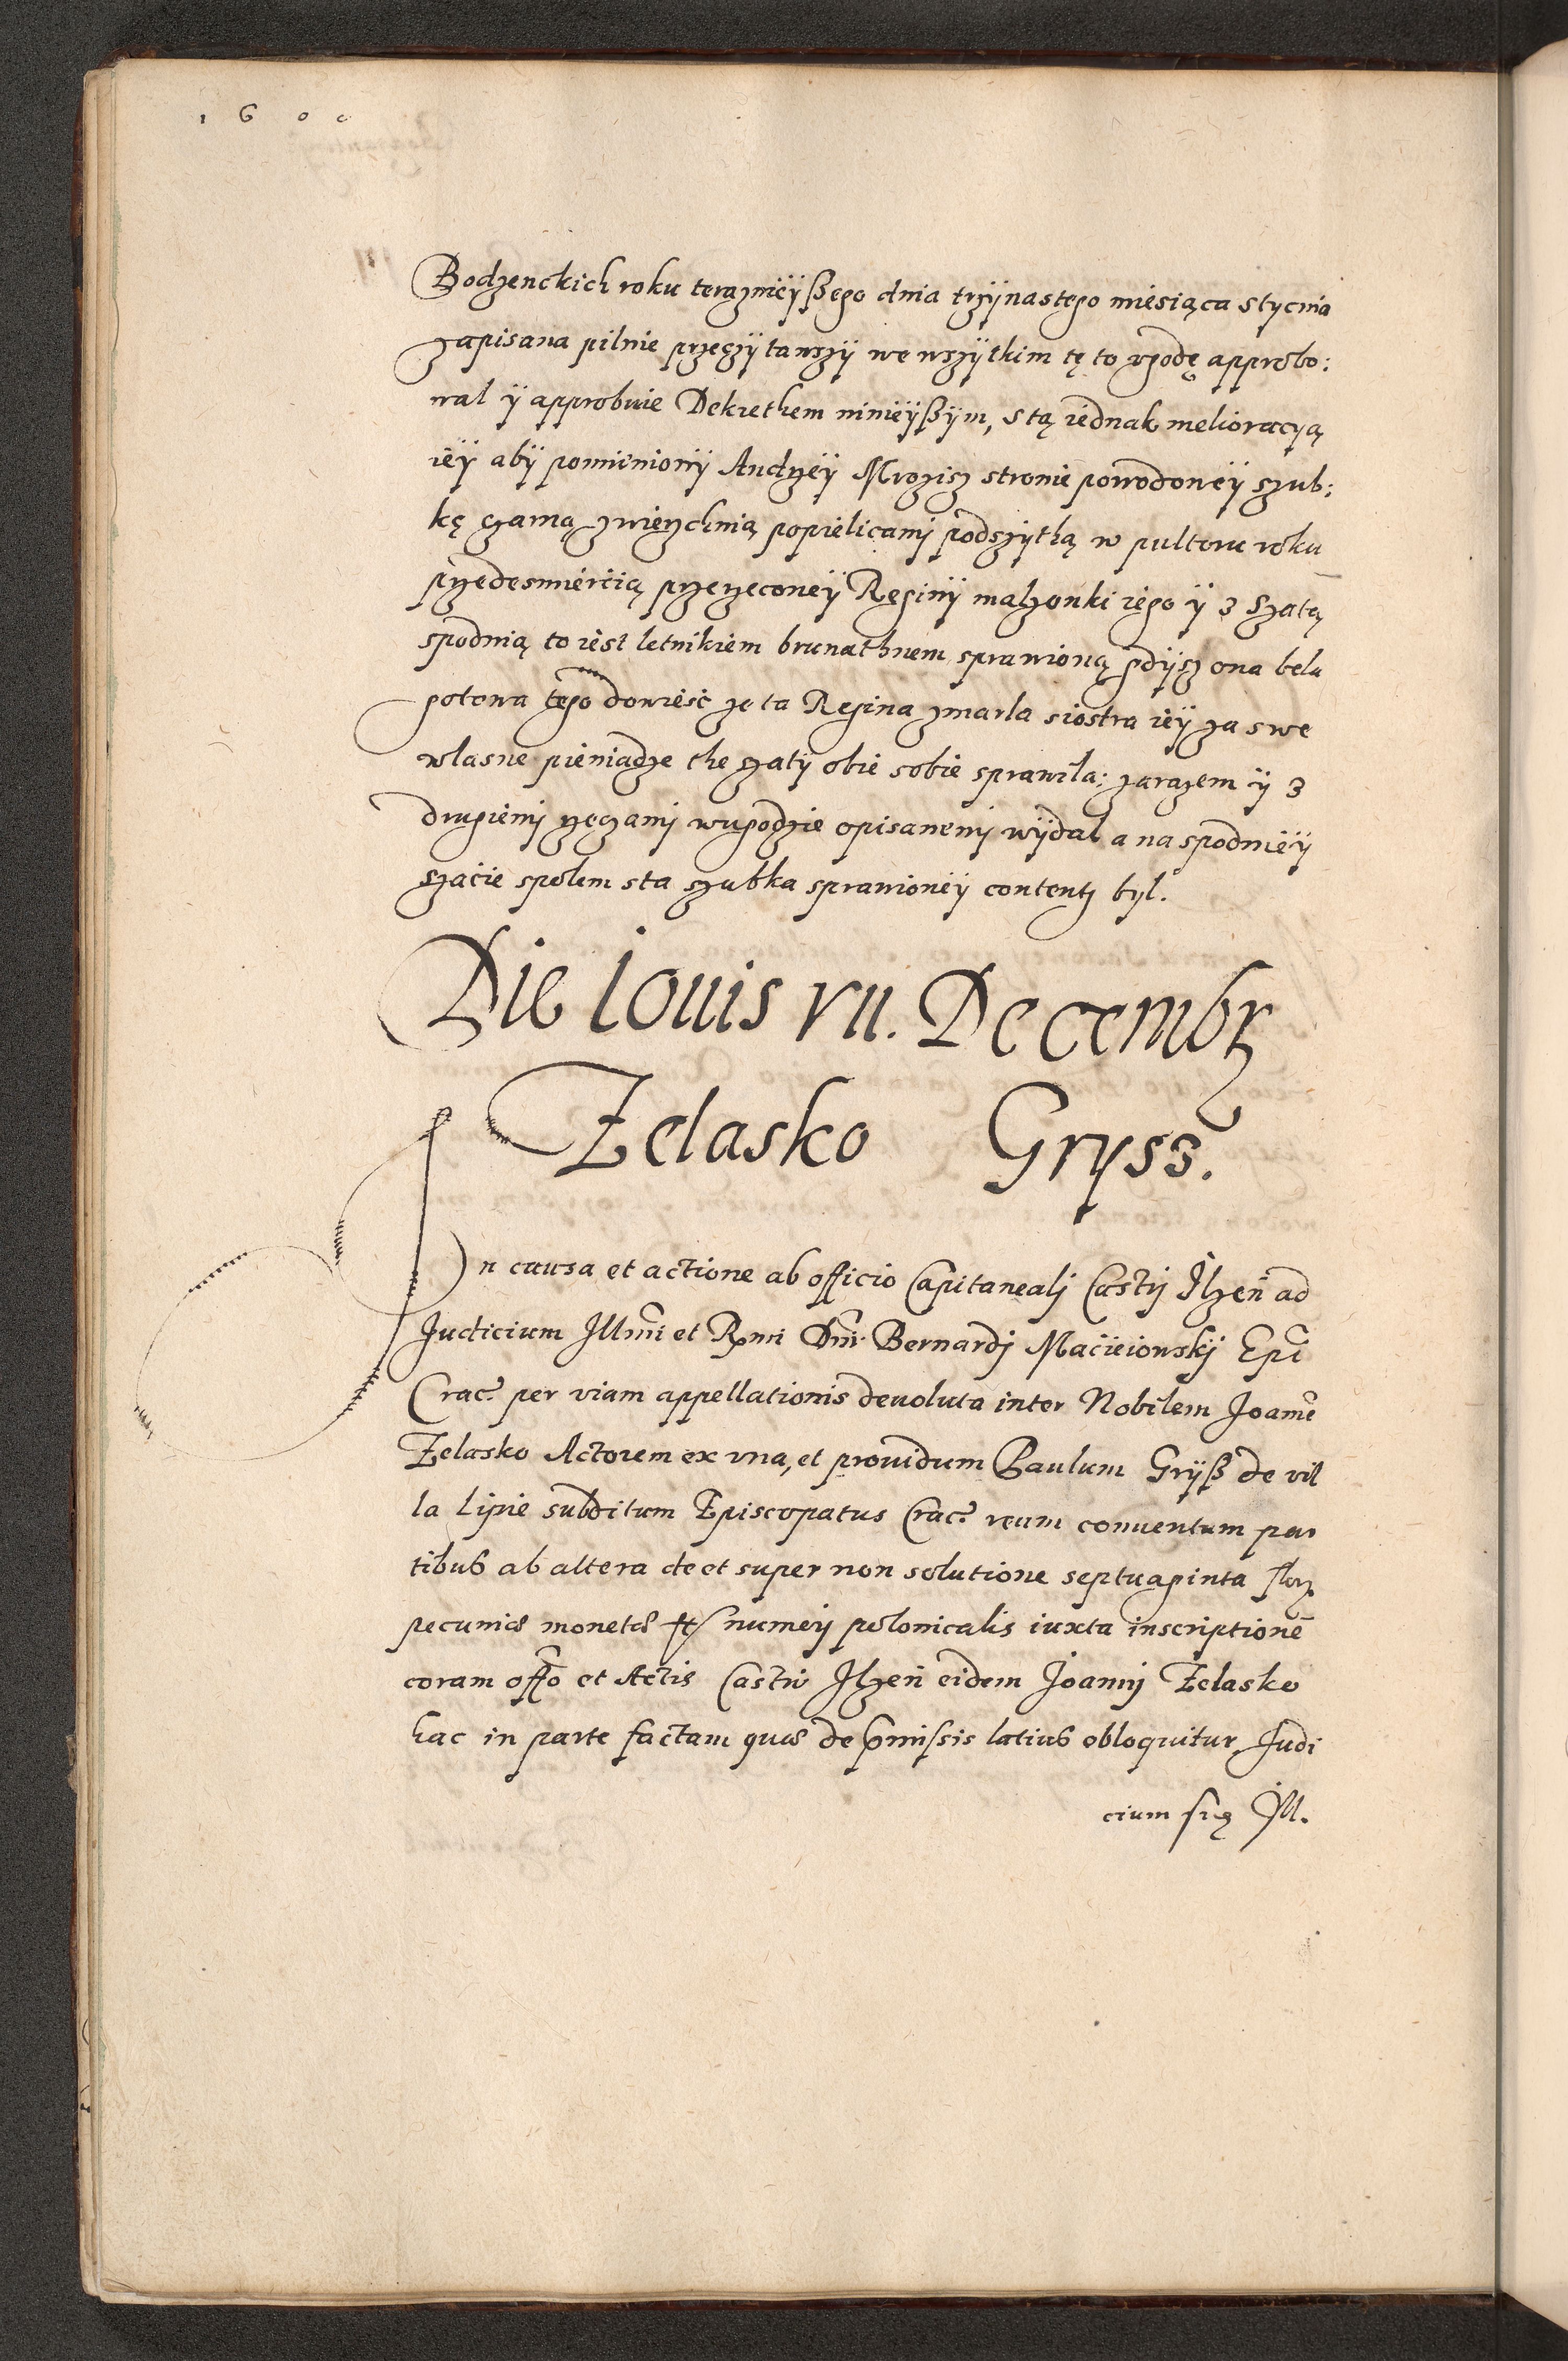 1600
Bodzenckich roku teraznieÿßego dnia trzÿnastego miesiąca Stycnia
zapisana pilnie przeczÿtawszÿ we wszÿtkim tę to vgodę approbo:
wal ÿ approbuie Dekrethem ninieÿßÿm, S tą iednak melioracyą
ieÿ abÿ pomienionÿ Andrzeÿ Mrozisz stronie powodoweÿ szub:
kę czarną zwierzchnią popielicami podszÿthą w pultoru roku
przedesmiercią przerzeconeÿ Reginÿ malzonki iego ÿ z Szatą
spodnią to iest letnikiem brunathnem sprawioną gdÿsz ona bela
gotowa tego dowiesc ze ta Regina zmarla siostra ieÿ za swe
wlasne pieniadze the szatÿ obie sobie sprawila: zarazem ÿ z
drugiemi rzeczami wugodzie opisanemi wÿdal a na spodnieÿ
szacie spolem sta szubka sprawioneÿ contentz byl.
Die Iouis VII. Decembr
Zelasko Gryss.
In causa et actione ab officio Capitanealj Castrj Ilzen̄ ad
Iudicium Illmi et Rmi Dni Bernardj Macieiowskÿ Epi
Crac. per viam appellationis deuoluta inter Nobilem Joanne
Zelasko Actorem ex vna, et prouidum Paulum Grÿß de vil
la Lipie subditum Episcopatus Crac. reum conuentum par
tibus ab altera de et super non solutione septuaginta flor
pecuniæ monetæ et numerj polonicalis iuxta inscriptionē
coram offo et Actis Castri Ilzen̄ eidem Joannj Zelasko
hac in parte factam quæ de pmissis latius obloquitur Judi
cium Ill.